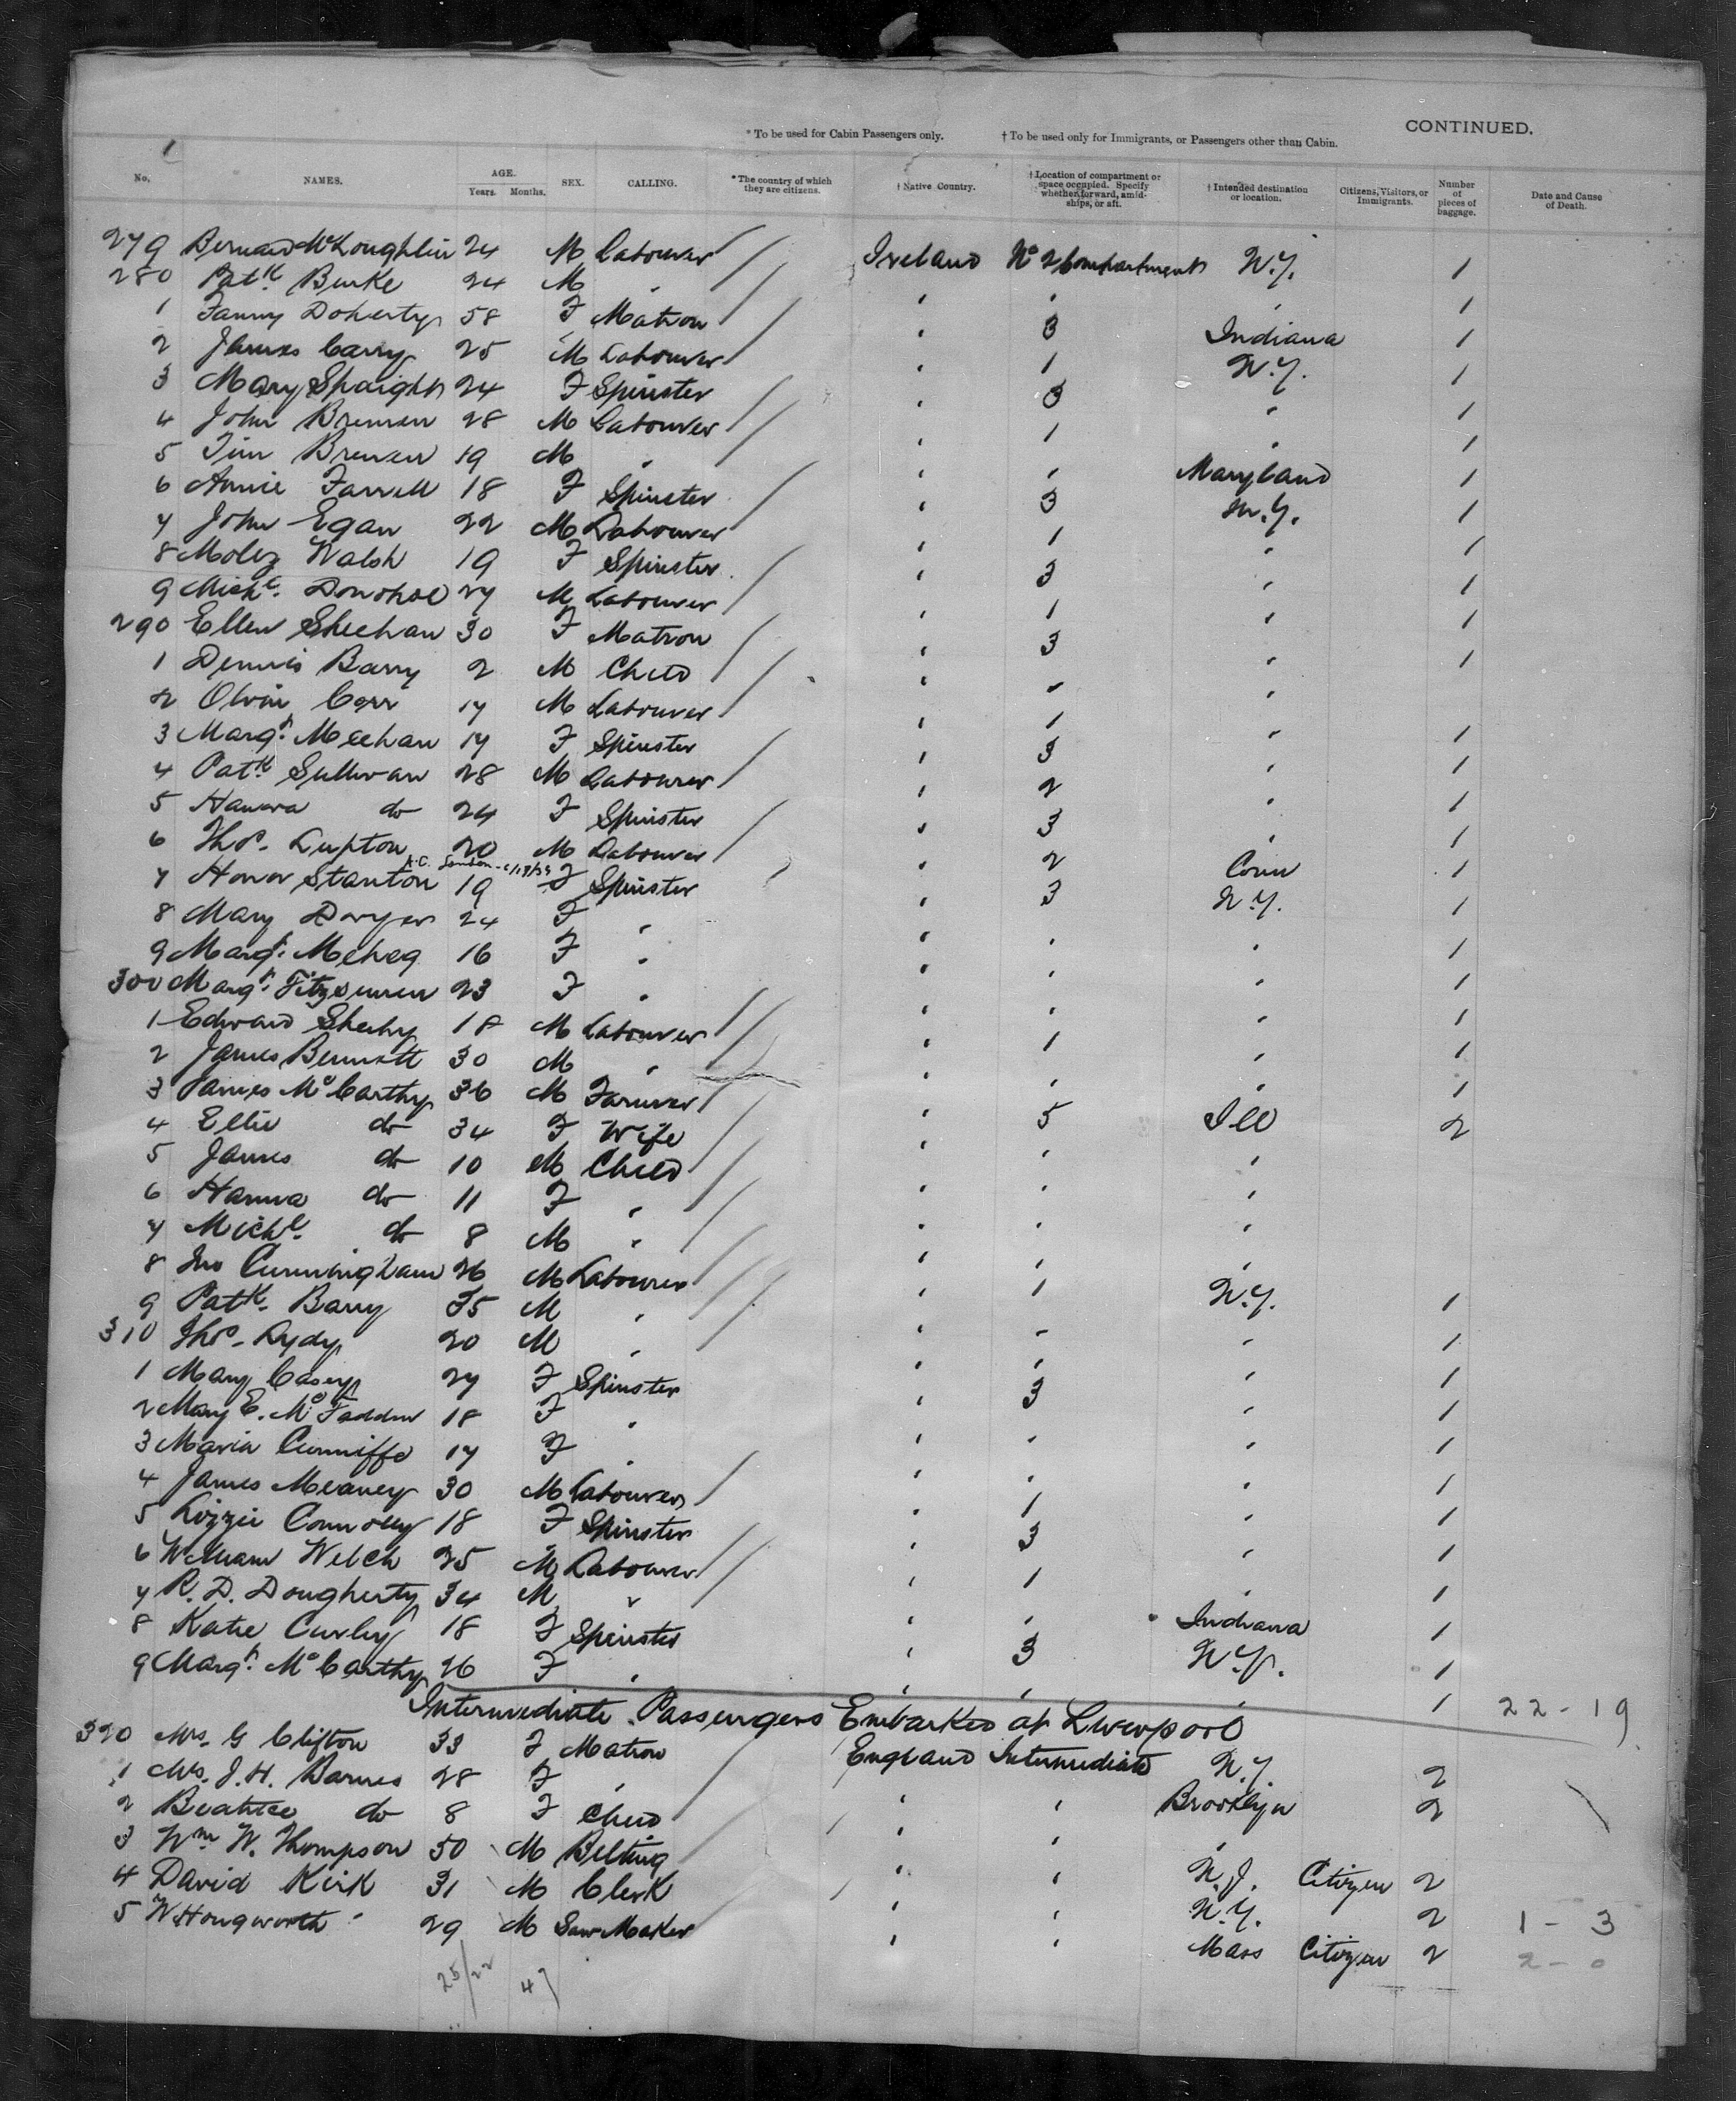 CONTINUED.
* To be used for Cabin Passengers only. † To be used only for Immigrants, or Passengers other than Cabin.
No. NAMES. AGE. Years. Months. SEX. CALLING. * The country of which they are citizens. † Native Country. † Location of compartment or space occupied. Specify whether forward, amidships, or aft. † Intended destination or location. Citizens, Visitors, or Immigrants. Number of pieces of baggage. Date and Cause of Death.
279 Bernard McLoughlin 24 M Labourer Ireland No 2 Compartment N.Y. 1
280 Patk Burke 24 M " " " " 1
1 Fanny Doherty 58 F Matron " 3 Indiana 1
2 James Carry 25 M Labourer " 1 N.Y. 1
3 Mary Spaight 24 F Spinster " 3 " 1
4 John Brennen 28 M Labourer " 1 " 1
5 Tim Brennen 19 M " " " Maryland 1
6 Annie Farrell 18 F Spinster " 3 N.Y. 1
7 John Egan 22 M Labourer " 1 " 1
8 Walsh 19 F Spinster " 3 " 1
9 Michl. Donohoe 27 M Labourer " 1 " 1
290 Ellen Sheehan 30 F Matron " 3 " 1
1 Dennis Barry 2 M Child " " "
2 Corr 17 M Labourer " 1 " 1
3 Margt. Meehan 17 F Spinster " 3 " 1
4 Patk Sullivan 28 M Labourer " 2 " 1
5 Hanora do 24 F Spinster " 3 " 1
6 Thos. Lupton 20 M Labourer " 2 Conn 1
7 Honor Stanton 19 F Spinster " 3 N.Y. 1
8 Mary Dwyer 24 F " " " " 1
9 Margt. Meheg 16 F " " " " 1
300 Margt. 23 F " " " " 1
1 Edward Sheehy 18 M Labourer " 1 " 1
2 James Bennett 30 M " " " " 1
3 James McCarthy 36 M Farmer " 5 Ill 2
4 Ellie do 34 F Wife " " "
5 James do 10 M Child " " "
6 Hanna do 11 F " " " "
7 Michl. do 8 M " " " "
8 Jno Cunningham 26 M Labourer " 1 N.Y. 1
9 Patk. Barry 35 M " " " " 1
310 Thos. Lydy 20 M " " " " 1
1 Mary Casey 27 F Spinster " 3 " 1
2 Mary E. McFadden 18 F " " " " 1
3 Maria Cunniffe 17 F " " " " 1
4 James Meaney 30 M Labourer " 1 " 1
5 Lizzie Connolly 18 F Spinster " 3 " 1
6 William Welch 25 M Labourer " 1 " 1
7 R. D. Dougherty 34 M " " " Indiana 1
8 Katie Curley 18 F Spinster " 3 N.Y. 1
9 Margt. McCarthy 26 F " " " " 1 22 - 19
Intermediate Passengers Embarked at Liverpool
320 Mrs. G Clifton 33 F Matron England Intermediate N.Y. 2
1 Mrs. J. H. Barnes 28 F " " " Brooklyn 2
2 Beatrice do 8 F Child " " "
3 Wm W. Thompson 50 M Belting " " N.J. Citizen 2
4 David Kirk 31 M Clerk " " N.Y. 2 1 - 3
5 W Hongworth 29 M Saw Maker " " Mass Citizen 2 2 - 0
25/22 47